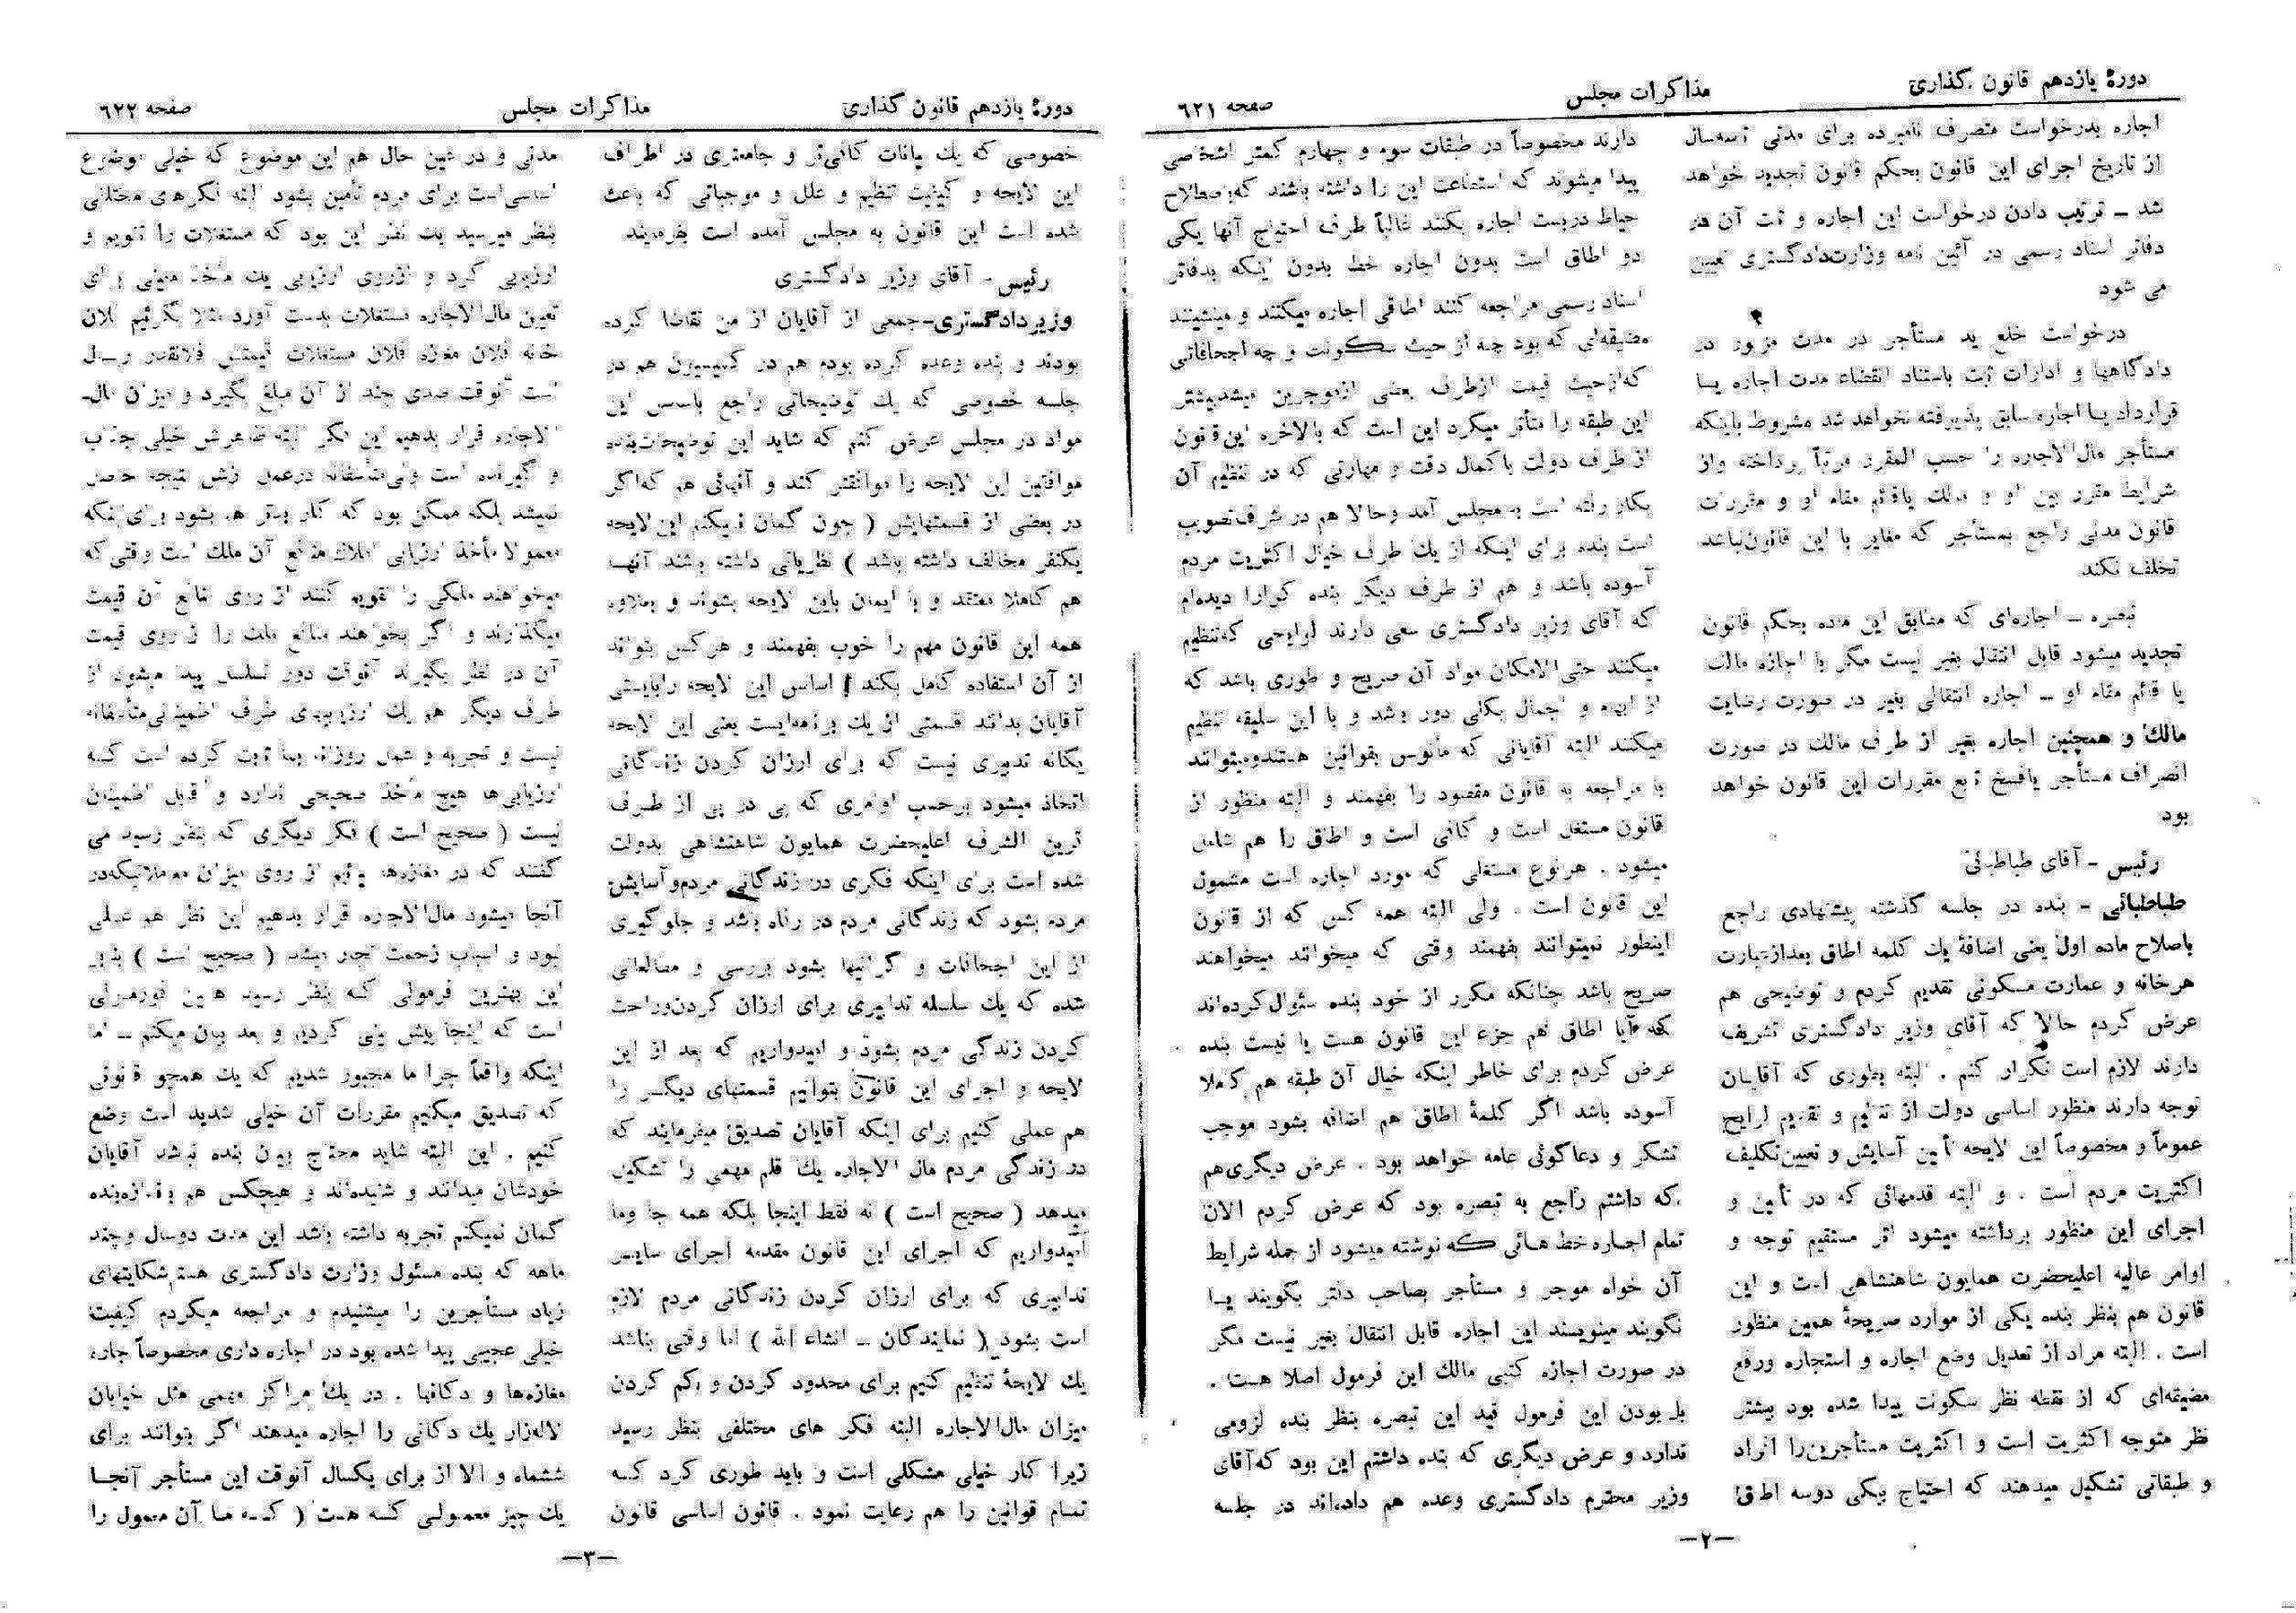 دورهٔ یازدهم قانون گذاری
مذاکرات مجلس
صفحه ٦٢١
اجاره بدرخواست متصرف نامبرده برای مدتی تا سه‌سال
از تاریخ اجرای این قانون بحکم قانون تجدید خواهد
شد ـ ترتیب دادن درخواست این اجاره و ثبت آن در
دفاتر اسناد رسمی در آئین نامه وزارت‌دادگستری تعیین
می شود
درخواست خلع ید مستأجر در مدت مزبور در
دادگاهها و ادارات ثبت باستناد انقضاء مدت اجاره یا
قرارداد یا اجاره سابق پذیرفته نخواهد شد مشروط باینکه
مستأجر مال‌الاجاره را حسب المقرر مرتباً پرداخته واز
شرایط مقرر بین او و مالک یاقائم مقام او و مقررات
قانون مدنی راجع بمستأجر که مغایر با این قانون‌نباشد
تخلف نکند
تبصره ـ اجاره‌ای که مطابق این ماده بحکم قانون
تجدید میشود قابل انتقال بغیر نیست مگر با اجازه مالک
یا قائم مقام او ـ اجاره انتقالی بغیر در صورت رضایت
مالك و همچنین اجاره بغیر از طرف مالک در صورت
انصراف مستأجر یافسخ تابع مقررات این قانون خواهد
بود
رئیس - آقای طباطبائی
طباطبائی - بنده در جلسه گذشته پیشنهادی راجع
باصلاح ماده اول یعنی اضافهٔ یك کلمه اطاق بعدازعبارت
هرخانه و عمارت مسکونی تقدیم کردم و توضیحی هم
عرض کردم حالا که آقای وزیر دادگستری تشریف
دارند لازم است تکرار کنم . البته بطوری که آقایان
توجه دارند منظور اساسی دولت از تنظیم و تقدیم لوایح
عموماً و مخصوصاً این لایحه تأمین آسایش و تعیین‌تکلیف
اکثریت مردم است . و البته قدمهائی که در تأمین و
اجرای این منظور برداشته میشود اثر مستقیم توجه و
اوامر عالیه اعلیحضرت همایون شاهنشاهی است و این
قانون هم بنظر بنده یکی از موارد صریحهٔ همین منظور
است . البته مراد از تعدیل وضع اجاره و استجاره ورفع
مضیقه‌ای که از نقطه نظر سکونت پیدا شده بود بیشتر
نظر متوجه اکثریت است و اکثریت مستأجرین‌را افراد
و طبقاتی تشکیل میدهند که احتیاج بیکی دوسه اطاق
دارند مخصوصاً در طبقات سوم و چهارم کمتر اشخاصی
پیدا میشوند که استطاعت این را داشته باشند که باصطلاح
حیاط دربست اجاره بکنند غالباً طرف احتیاج آنها یکی
دو اطاق است بدون اجاره خط بدون اینکه بدفاتر
اسناد رسمی مراجعه کنند اطاقی اجاره میکنند و مینشینند
مضیقه‌ای که بود چه از حیث سکونت و چه اجحافاتی
که‌ازحیث قیمت ازطرف بعضی ازموجرین میشدبیشتر
این طبقه را متأثر میکرد این است که بالاخره این‌قانون
از طرف دولت باکمال دقت و مهارتی که در تنظیم آن
بکار رفته است به مجلس آمد وحالا هم در شرف‌تصویب
است بنده برای اینکه از یك طرف خیال اکثریت مردم
آسوده باشد و هم از طرف دیگر بنده کرارا دیده‌ام
که آقای وزیر دادگستری سعی دارند لوایحی که‌تنظیم
میکنند حتی‌الامکان مواد آن صریح و طوری باشد که
از ابهام و اجمال بکلی دور باشد و با این سلیقه تنظیم
میکنند البته آقایانی که مأنوس بقوانین هستندومیتوانند
با مراجعه به قانون مقصود را بفهمند و البته منظور از
قانون مستقل است و کافی است و اطاق را هم شامل
میشود . هرنوع مستغلی که مورد اجاره است مشمول
این قانون است . ولی البته همه کس که از قانون
اینطور نمیتوانند بفهمند وقتی که میخوانند میخواهند
صریح باشد چنانکه مکرر از خود بنده سئوال‌کرده‌اند
که آیا اطاق هم جزء این قانون هست یا نیست بنده
عرض کردم برای خاطر اینکه خیال آن طبقه هم کاملا
آسوده باشد اگر کلمهٔ اطاق هم اضافه بشود موجب
تشکر و دعاگوئی عامه خواهد بود . عرض دیگری‌هم
که داشتم راجع به تبصره بود که عرض کردم الان
تمام اجاره خط هائی که نوشته میشود از جمله شرایط
آن خواه موجر و مستأجر بصاحب دفتر بگویند یا
نگویند مینویسند این اجاره قابل انتقال بغیر نیست مگر
در صورت اجازه کتبی مالك این فرمول اصلا هست .
با بودن این فرمول قید این تبصره بنظر بنده لزومی
ندارد و عرض دیگری که بنده داشتم این بود که‌آقای
وزیر محترم دادگستری وعده هم داده‌اند در جلسه
—٢—
دورهٔ یازدهم قانون گذاری
مذاکرات مجلس
صفحه ٦٢٢
خصوصی که یك بیانات کافی‌تر و جامعتری در اطراف
این لایحه و کیفیت تنظیم و علل و موجباتی که باعث
شده است این قانون به مجلس آمده است بفرمایند
رئیس - آقای وزیر دادگستری
وزیردادگستری-جمعی از آقایان از من تقاضا کرده
بودند و بنده وعده کرده بودم هم در کمیسیون هم در
جلسه خصوصی که یك توضیحاتی راجع باساس این
مواد در مجلس عرض کنم که شاید این توضیحات‌بنده
موافقین این لایحه را موافقتر کند و آنهائی هم که‌اگر
در بعضی از قسمتهایش ( چون گمان نمیکنم این‌لایحه
یکنفر مخالف داشته باشد ) نظریاتی داشته باشند آنها
هم کاملا معتقد و با ایمان باین لایحه بشوند و بعلاوه
همه این قانون مهم را خوب بفهمند و هرکس بتواند
از آن استفاده کامل بکند اساس این لایحه رابایستی
آقایان بدانند قسمتی از یك برنامه‌ایست یعنی این لایحه
یگانه تدبیری نیست که برای ارزان کردن زندگانی
اتخاذ میشود برحسب اوامری که پی در پی از طرف
قرین الشرف اعلیحضرت همایون شاهنشاهی بدولت
شده است برای اینکه فکری در زندگانی مردم‌وآسایش
مردم بشود که زندگانی مردم در رفاه باشد و جلوگیری
از این اجحافات و گرانیها بشود بررسی و مطالعاتی
شده که یك سلسله تدابیری برای ارزان کردن‌وراحت
کردن زندگی مردم بشود و امیدواریم که بعد از این
لایحه و اجرای این قانون بتوانیم قسمتهای دیگر را
هم عملی کنیم برای اینکه آقایان تصدیق میفرمایند که
در زندگی مردم مال الاجاره یك قلم مهمی را تشکیل
میدهد ( صحیح است ) نه فقط اینجا بلکه همه جا وما
امیدواریم که اجرای این قانون مقدمه اجرای سایر
تدابیری که برای ارزان کردن زندگانی مردم لازم
است بشود ( نمایندگان ـ انشاء الله ) اما وقتی بناشد
یك لایحهٔ تنظیم کنیم برای محدود کردن و کم کردن
میزان مال‌الاجاره البته فکر های مختلفی بنظر رسید
زیرا کار خیلی مشکلی است و باید طوری کرد که
تمام قوانین را هم رعایت نمود . قانون اساسی قانون
مدنی و در عین حال هم این موضوع که خیلی موضوع
اساسی‌است برای مردم تأمین بشود البته فکرهای مختلفی
بنظر میرسید یك نظر این بود که مستغلات را تقویم و
ارزیابی کرد و ازروی ارزیابی یك مأخذ معینی برای
تعیین مال‌الاجاره مستغلات بدست آورد مثلا بگوئیم فلان
خانه فلان مغازه فلان مستغلات قیمتش فلانقدر ریال
است آنوقت صدی چند از آن مبلغ بگیرد و میزان مال‌ـ
الاجاره قرار بدهیم این فکر البته ظاهرش خیلی جذاب
و گیرنده است ولی‌متأسفانه درعمل ازش نتیجه حاصل
نمیشد بلکه ممکن بود که کار بدتر هم بشود برای‌اینکه
معمولا مأخذ ارزیابی املاك‌منافع آن ملك است وقتی که
میخواهند ملکی را تقویم کنند از روی منافع آن قیمت
میگذارند و اگر بخواهند منافع ملك را از روی قیمت
آن در نظر بگیرند آنوقت دور تسلسل پیدا میشود از
طرف دیگر هم یك ارزیابیهای طرف اطمینانی‌متأسفانه
نیست و تجربه و عمل روزانه بما ثابت کرده است که
ارزیابی‌ها هیچ مأخذ صحیحی ندارد و قابل اطمینان
نیست ( صحیح است ) فکر دیگری که بنظر رسید می
گفتند که در مغازه‌ها بیائیم از روی میزان معاملاتیکه‌در
آنجا میشود مال‌الاجاره قرار بدهیم این نظر هم عملی
نبود و اسباب زحمت تجار میشد ( صحیح است ) بنابر
این بهترین فرمولی که بنظر رسید همین فورمولی
است که اینجا پیش بینی کردیم و بعد بیان میکنم ـ اما
اینکه واقعاً چرا ما مجبور شدیم که یك همچو قانونی
که تصدیق میکنیم مقررات آن خیلی شدید است وضع
کنیم . این البته شاید محتاج ببیان بنده نباشد آقایان
خودشان میدانند و شنیده‌اند و هیچکس هم باندازه‌بنده
گمان نمیکنم تجربه داشته باشد این مدت دوسال وچند
ماهه که بنده مسئول وزارت دادگستری هستم‌شکایتهای
زیاد مستأجرین را میشنیدم و مراجعه میکردم کیفیت
خیلی عجیبی پیدا شده بود در اجاره داری مخصوصاً اجاره
مغازه‌ها و دکانها . در یك مراکز مهمی مثل خیابان
لاله‌زار یك دکانی را اجاره میدهند اگر بتوانند برای
ششماه و الا از برای یکسال آنوقت این مستأجر آنجا
یك چیز معمولی که هست ( که ما آن معمول را
—٣—